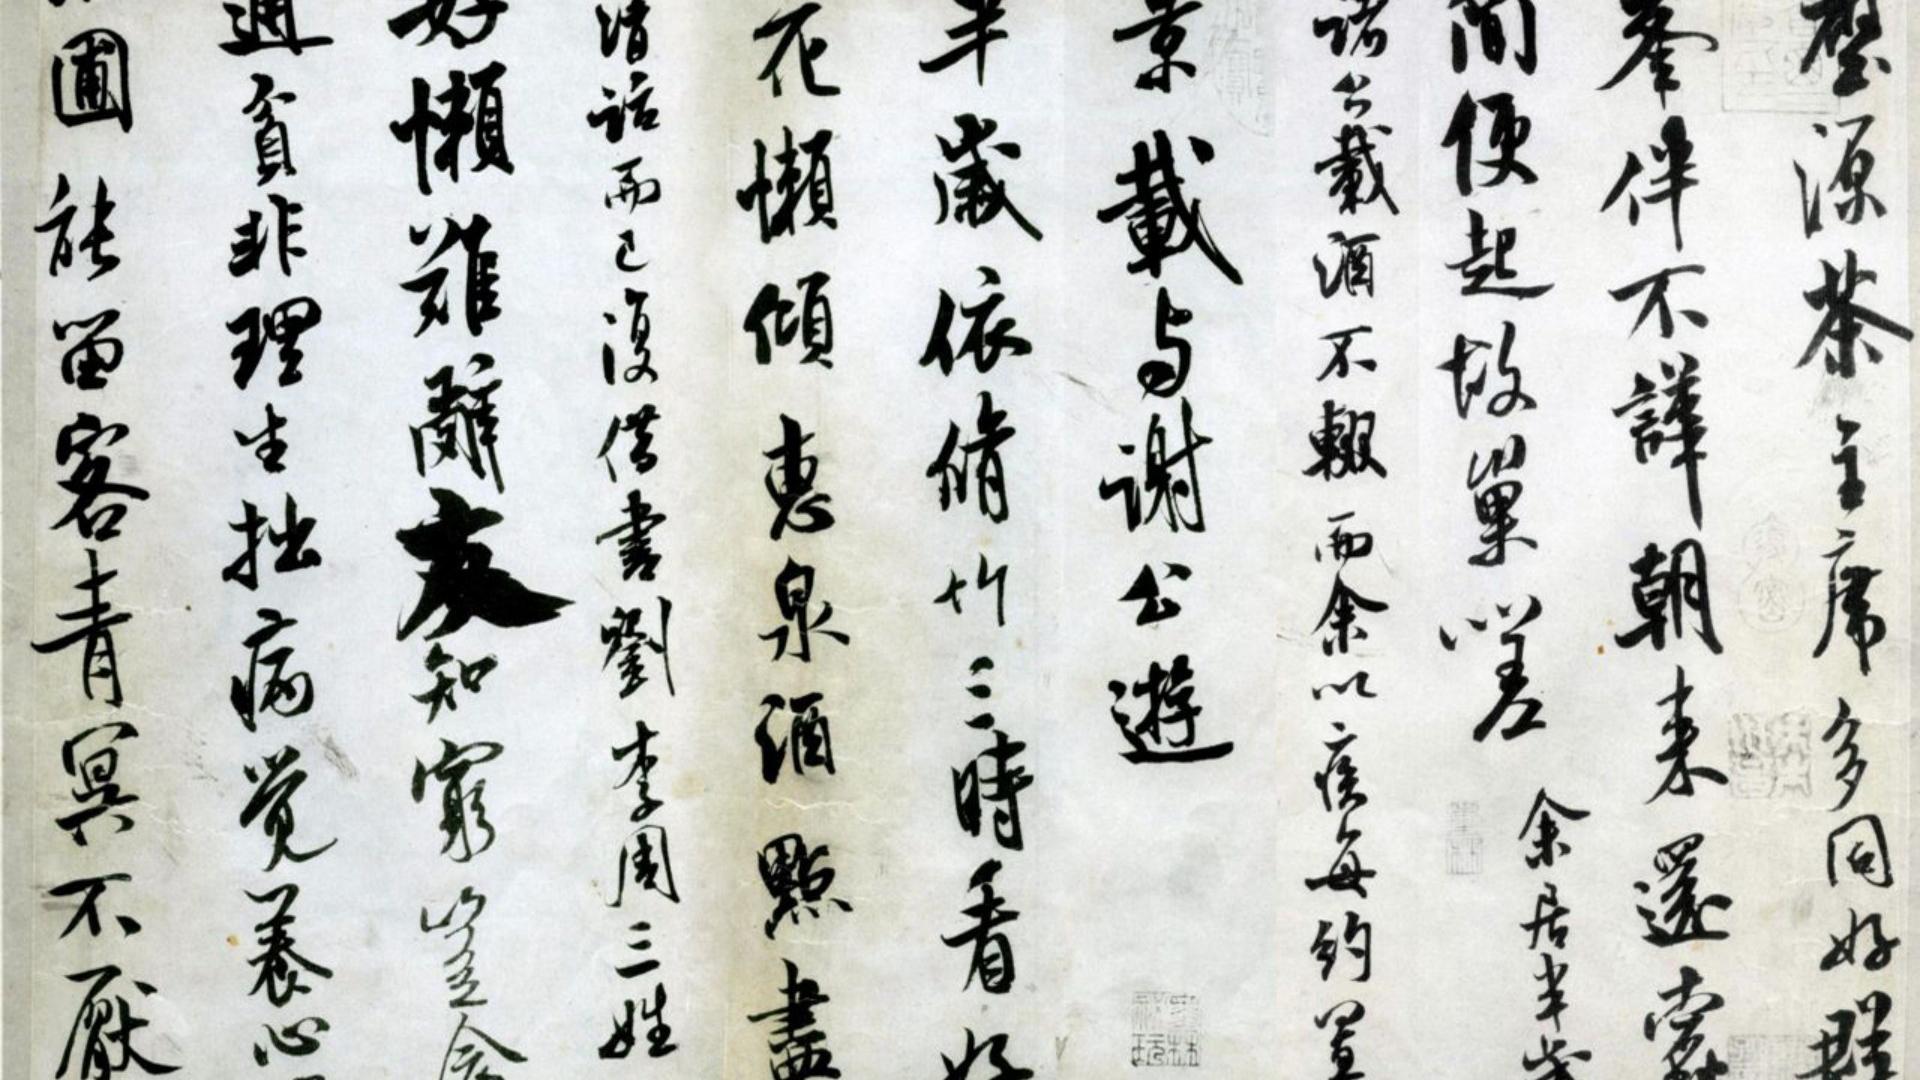 壑源茶主席多同好群
峯伴不譁朝来還
簡便起故巢嗟 余居半歲
諸公載酒不輟而余以疾每約置
景載与謝公遊
半歲依脩竹三時看好
花懶傾惠泉酒點盡
清話而已復借書劉李周三姓
好懶難辭友知窮豈念
通貧非理生拙病覺養心
圃能留客青冥不厭